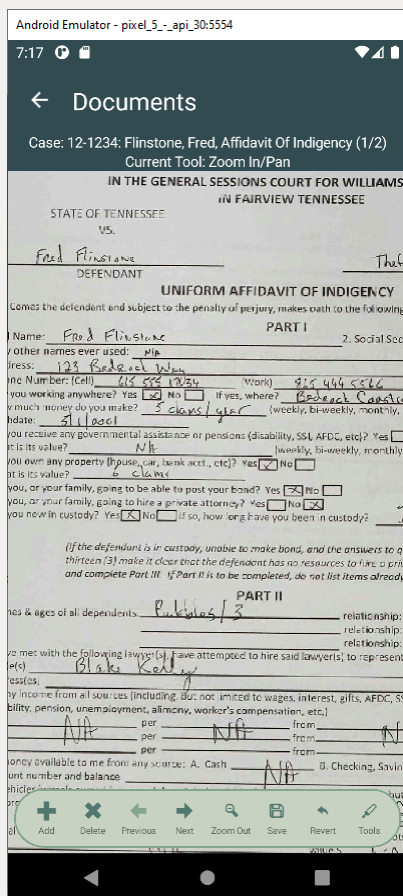 Android Emulator - pixel_5_-_api_30:5554
7:17
Documents
Case: 12-1234: Flinstone, Fred, Affidavit Of Indigency (1/2)
Current Tool: Zoom In/Pan
IN THE GENERAL SESSIONS COURT FOR WILLIAMS
IN FAIRVIEW TENNESSEE
STATE OF TENNESSEE
VS.
Fred Flinstone
Thef
DEFENDANT
UNIFORM AFFIDAVIT OF INDIGENCY
Comes the defendent and subject to the penalty of perjury, makes oath to the following
PART I
Name: Fred Flinstone 2. Social Sec
other names ever used: N/A
ress: 123 Bedrock Way
ne Number: (Cell) 615 555 1234 Work) 865 444 5566
you working anywhere? Yes No If yes, where? Bedrock
much money do you make? 5 clams/year (weekly, bi-weekly, monthly,
hdate:
you receive any governmental assistance or pensions (disability, SSI, AFDC, etc)? Yes
t is its value? N/A (weekly, bi-weekly, monthly
you own any property (house, car, bank acct., etc)? Yes No
at is its value? 6 clams
you, or your family, going to be able to post your bond? Yes No
you, or your family, going to hire a private attorney? Yes No
you now in custody? Yes No If so, how long have you been in custody?
(If the defendant is in custody, unable to make bond, and the answers to q
thirteen (3) make it clear that the defendant has no resources to hire a priv
and complete Part III. If Part II is to be completed, do not list items already
PART II
nes & ages of all dependents: Pebbles/3 relationship:
relationship:
relationship:
ve met with the following lawyer(s), have attempted to hire said lawyer(s) to represent
e(s) Blake Kelley
ress(es)
ny income from all sources (including, But not limited to wages, interest, gifts, AFDC, SS
bility, pension, unemployment, alimony, worker's compensation, etc.)
N/A per N/A from N
per from
per from
oney available to me from any source: A. Cash N/A B. Checking, Savin
unt number and balance
Add Delete Previous Next Zoom Out Save Revert Tools